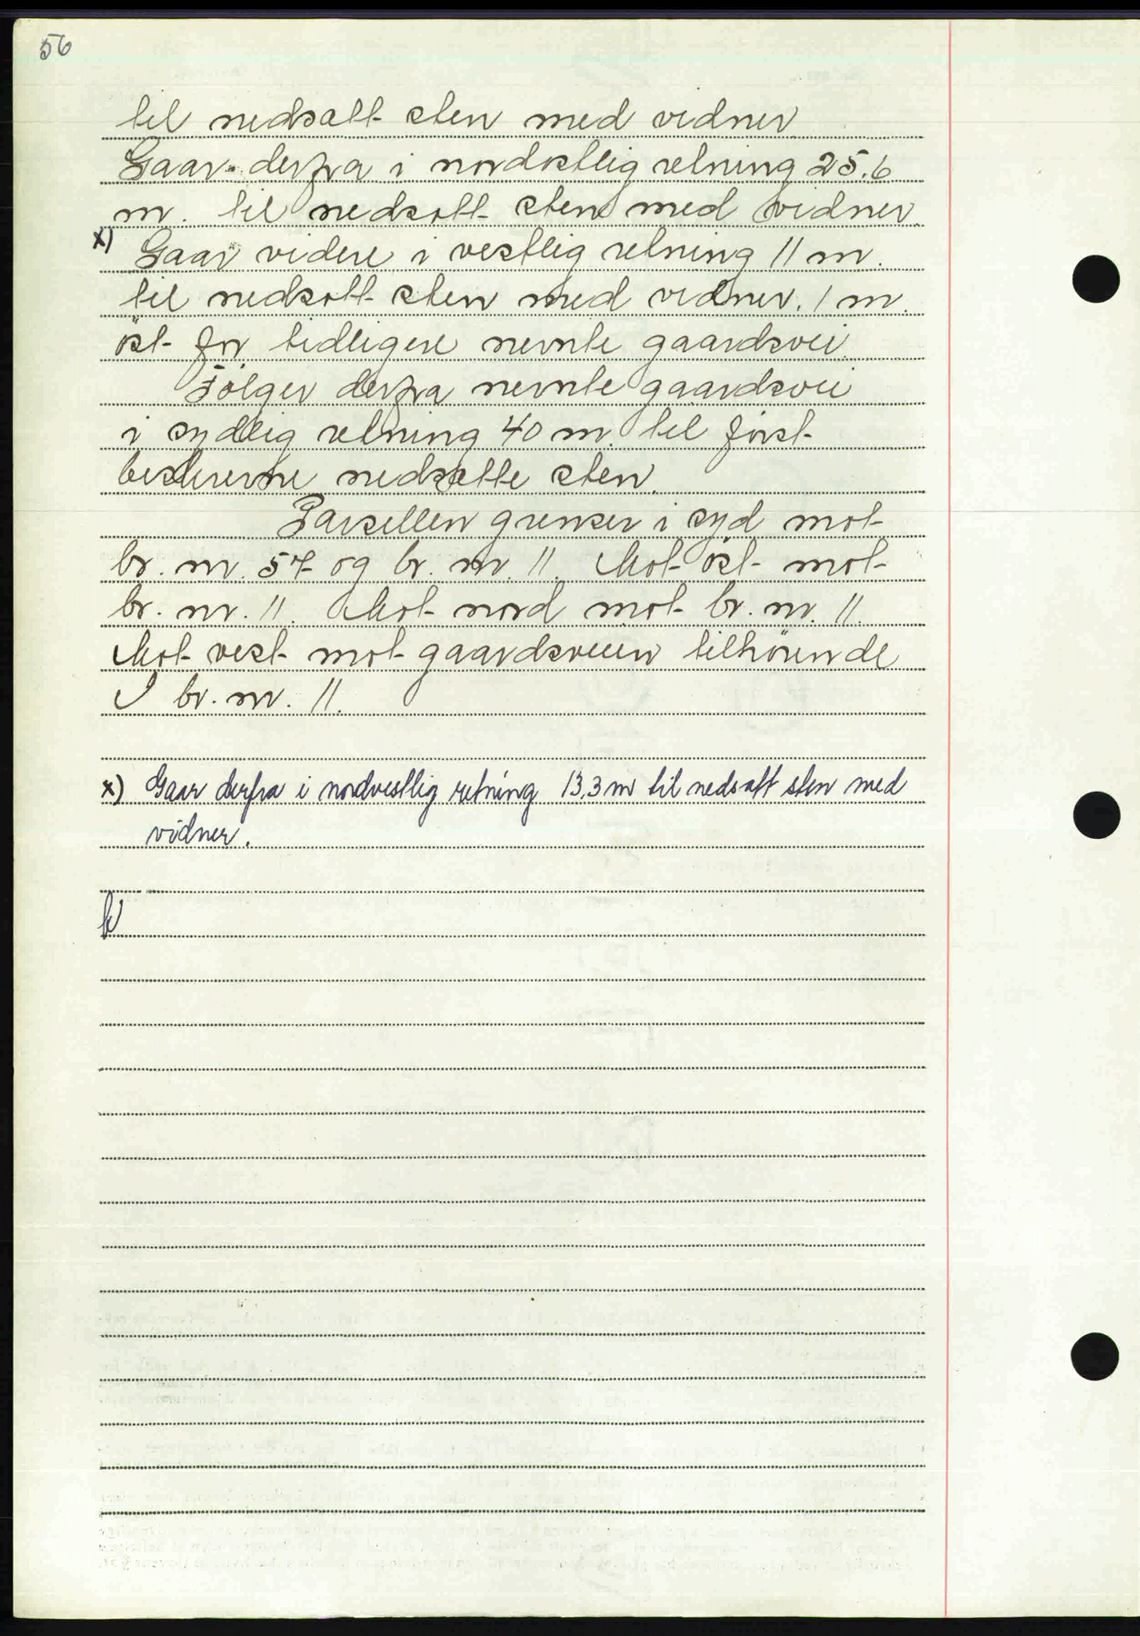 56
til nedsatt sten med vidner
Gaar derfra i nordøstlig retning 25.6
m. til nedsatt sten med vidner.
x) Gaar videre i vestlig retning 11 m.
til nedsatt sten med vidner. 1 m.
öst for tidligere nevnte gaardsvei.
Fölger derfra nevnte gaardsvei
i sydlig retning 40 m. til först
beskrevne nedsatte sten.
Parsellen grenser i syd mot
br. nr. 57 og br. nr. 11. Mot öst mot
br. nr. 11. Mot nord mot br. nr. 11.
Mot vest mot gaardsveien tilhörende
br. nr. 11.
x) Gaar derfra i nordvestlig retning 13,3 m til nedsatt sten med
vidner.